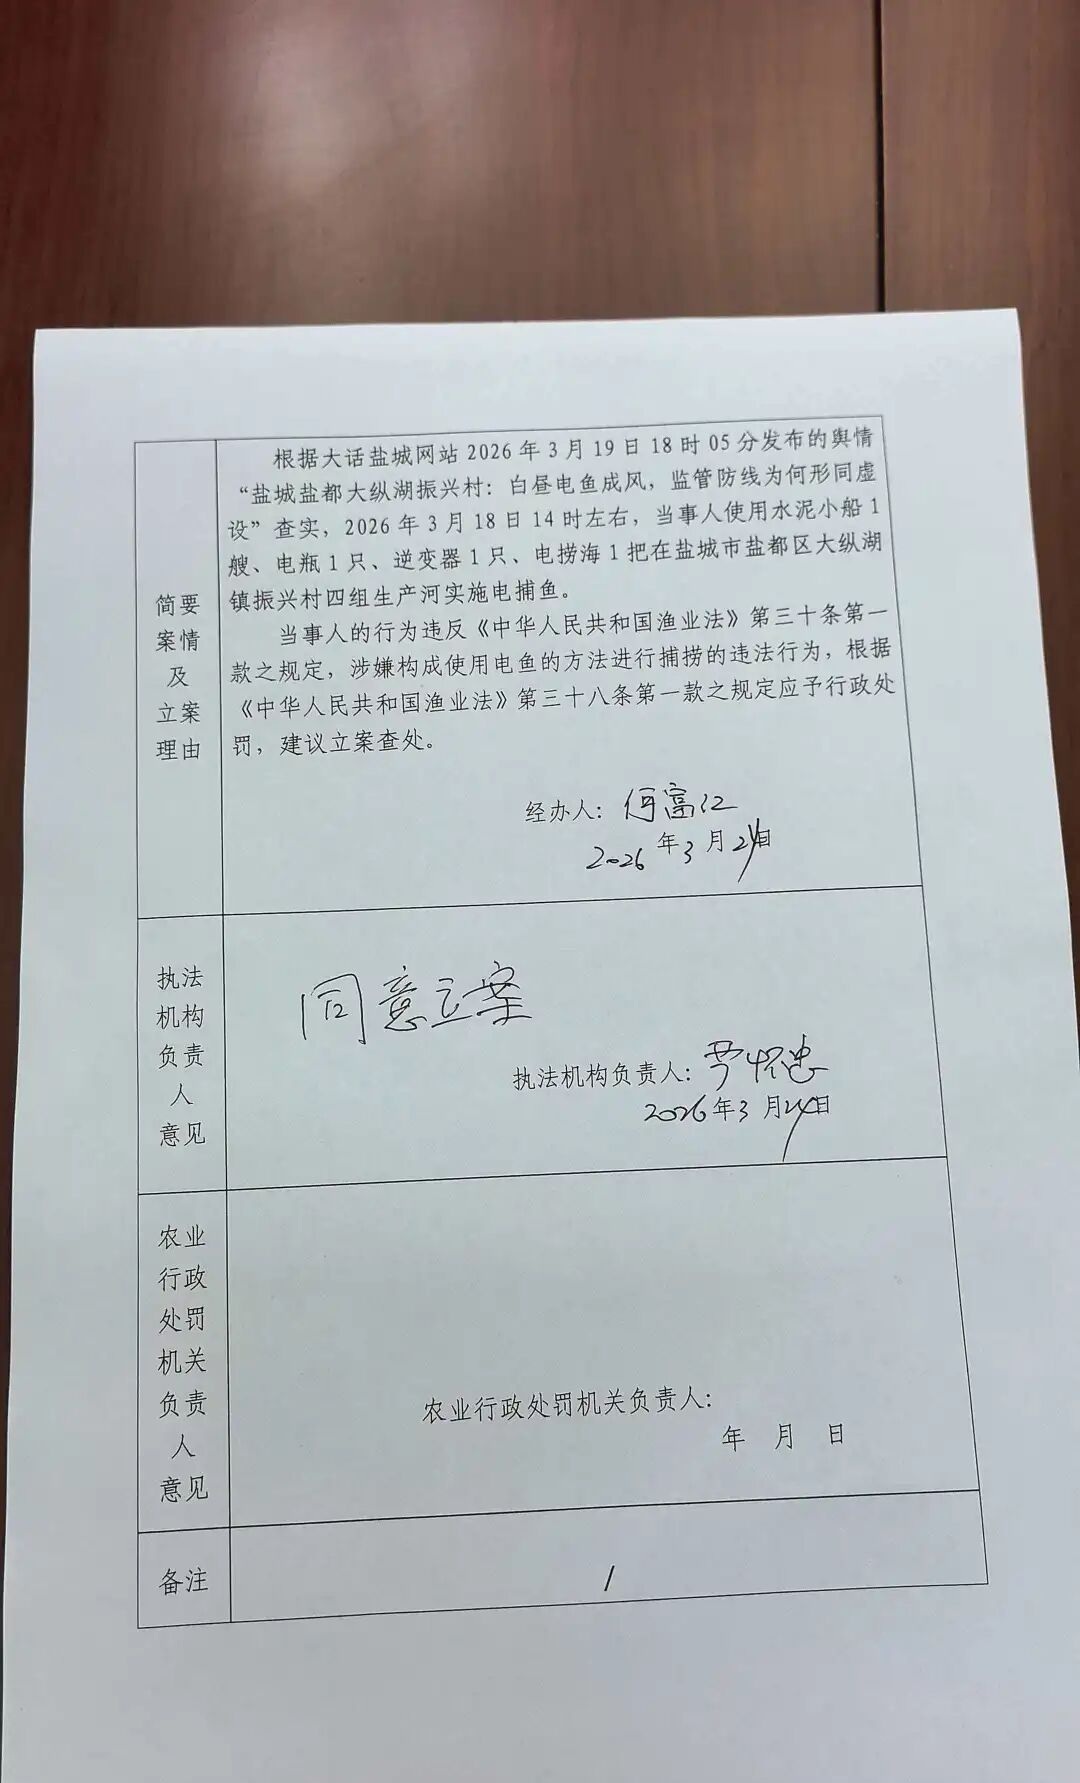 简要
案情
及
立案
理由
根据大话盐城网站2026年3月19日18时05分发布的舆情
“盐城盐都大纵湖振兴村：白昼电鱼成风，监管防线为何形同虚
设”查实，2026年3月18日14时左右，当事人使用水泥小船1
艘、电瓶1只、逆变器1只、电捞海1把在盐城市盐都区大纵湖
镇振兴村四组生产河实施电捕鱼。
当事人的行为违反《中华人民共和国渔业法》第三十条第一
款之规定，涉嫌构成使用电鱼的方法进行捕捞的违法行为，根据
《中华人民共和国渔业法》第三十八条第一款之规定应予行政处
罚，建议立案查处。
经办人：何富江
2026年3月24日
执法
机构
负责
人
意见
同意立案
执法机构负责人：怀忠
2026年3月24日
农业
行政
处罚
机关
负责
人
意见
农业行政处罚机关负责人：
年 月 日
备注
/